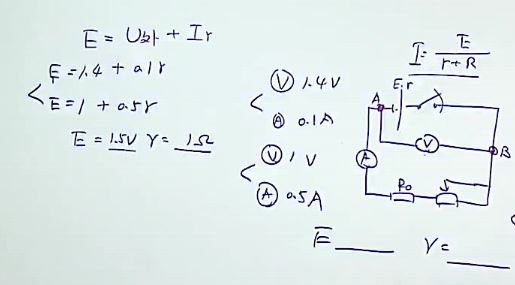 E = U外 + Ir
E = 1.4 + 0.1r
E = 1 + 0.5r
E = 1.5V r = 1Ω
V 1.4V
A 0.1A
V 1V
A 0.5A
I = E / r+R
E.r
A
V
B
A
R₀
E
r =